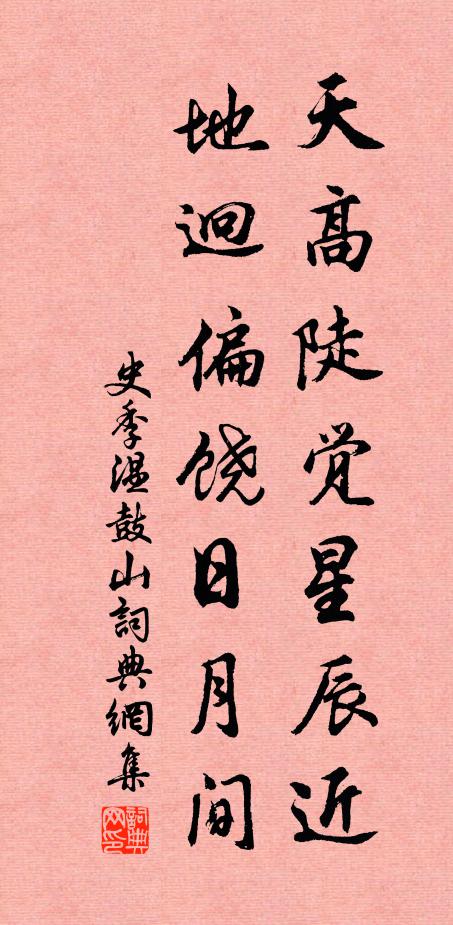 天高陡觉星辰近
地迥偏饶日月间
史季温鼓山詞典網集
詞典网印